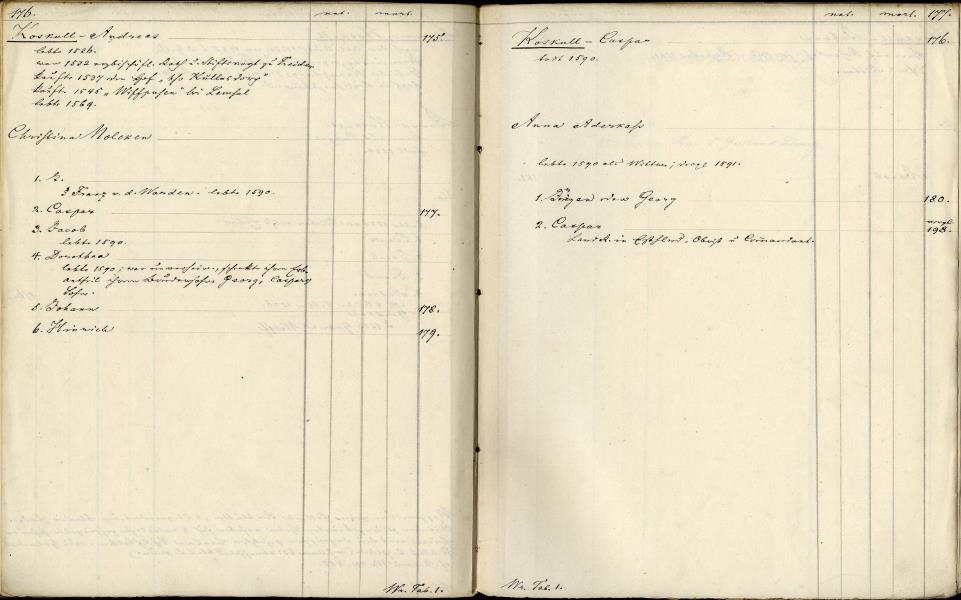 176.
nat. mort.
Koskull - Andreas 175.
lebte 1526.
war 1532 erzbischöfl. Rath u. Stiftsvogt zu Treiden
kaufte 1537 den Hof
kaufte 1545 bei Lemsal
lebte 1569.
Christina Nolcken
1. N.
Franz v. d. Warden. lebte 1590.
2. Caspar 177.
3. Jacob
lebte 1590.
4. Dorothea
lebte 1590; war unverheir., schenkte ihren Erb-
antheil ihrem Brudersohn Georg, Caspars
Sohn.
5. Johann 178.
6. Hinrich 179.
Wr. Tab. 1.
nat. mort. 177.
Koskull - Caspar 176.
todt 1590.
Anna Aderkass
lebte 1590 als Wittwe; 1591.
1. Jürgen oder Georg 180.
2. Caspar vergl. 198.
Landr. in Ehstland, Obrist u Commandant.
Wr. Tab. 1.